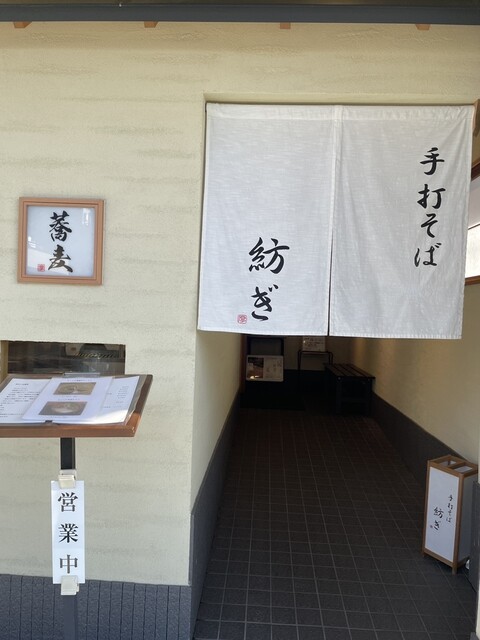 手打そば
紡ぎ
蕎麦
営業中
手打そば
紡ぎ